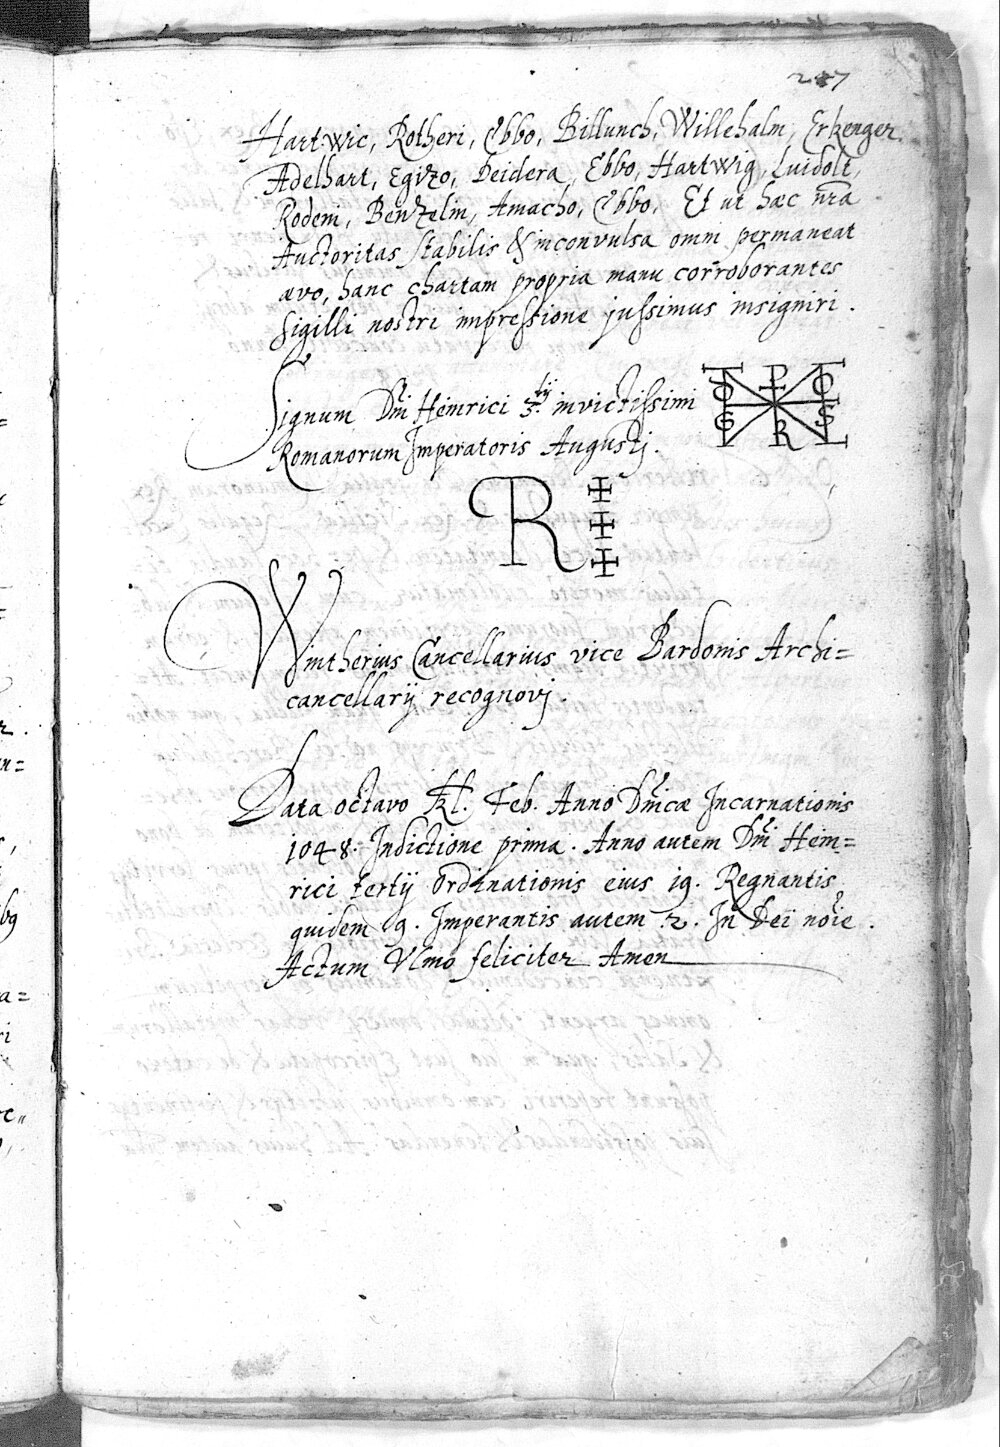 247
Hartwic, Rotheri, Ebbo, Billunch, Willehalm, Erkenger
Adelhart, Egizo, Deidera, Ebbo, Hartwig, Luidolt,
Rodem, Bentzelin, Amacho, Ebbo, Et ut haec nr̃a
Auctoritas stabilis & inconvulsa omni permaneat
aevo, hanc chartam propria manu corroborantes
sigilli nostri impressione jussimus insigniri.
Signum Dñi Heinrici 3.tij invictissimi
Romanorum Imperatoris Augustj.
R
Wintherius Cancellarius vice Bardonis Archi=
cancellarij recognovj.
Data octavo Kl. Feb. Anno Dñicae Incarnationis
1048. Indictione prima. Anno autem Dñi Hein=
rici tertij ordinationis eius 19. Regnantis
quidem 9. Imperantis autem 2. In Dei noĩe.
Actum Ulmo feliciter Amen